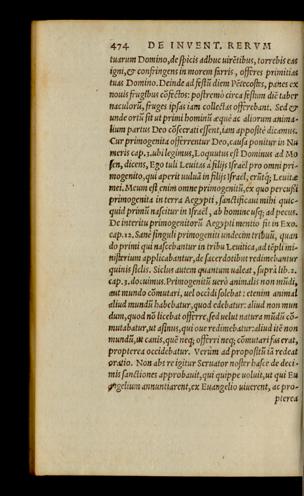 474 DE INVENT. RERVM
tuarum Domino, de spicis adhuc uirẽtibus, torrebis eas
igni, & confringens in morem farris, offeres primitias
tuas Domino. Deinde ad festũ diem Pẽtecostes, panes ex
nouis frugibus cõfectos: postremò circa festum diẽ taber
naculorũ, fruges ipsas iam collectas offerebant. Sed &
unde ortũ sit ut primi hominũ æquè ac aliorum anima-
lium partus Deo cõsecrati essent, iam appositè dicamus.
Cur primogenita offerrentur Deo, causa ponitur in Nu
meris cap. 3. ubi legimus, Loquutus est Dominus ad Mo
sen, dicens, Ego tuli Leuitas à filijs Israel pro omni pri-
mogenito, qui aperit uuluã in filijs Israel, erũtq; Leuitæ
mei. Meum est enim omne primogenitũ, ex quo percussi
primogenita in terra Aegypti, sanctificaui mihi quic-
quid primũ nascitur in Israel, ab homine usq; ad pecus.
De interitu primogenitorũ Aegypti mentio fit in Exo.
cap. 12. Sane singuli primogeniti undecim tribuũ, quan
do primi qui nascebantur in tribu Leuitica, ad tẽpli mi-
nisterium applicabantur, de sacerdotibus redimebantur
quinis siclis. Siclus autem quantum ualeat, suprà lib. 2.
cap. 3. docuimus. Primogenitũ uerò animalis non mũdi,
aut mundo cõmutari, uel occidi solebat: etenim animal
aliud mundũ habebatur, quod edebatur: aliud non mun
dum, quod nõ licebat offerre, sed uel ut natura mũdũ cõ-
mutabatur, ut asinus, qui oue redimebatur: aliud itẽ non
mundũ, ut canis, quẽ neq; offerri neq; cõmutari fas erat,
propterea occidebatur. Verùm ad propositũ iã redeat
oratio. Non abs re igitur Seruator noster hasce de deci-
mis sanctiones approbauit, qui quippe uoluit, ut qui Eu
angelium annuntiarent, ex Euangelio uiuerent, ac pro-
pterea